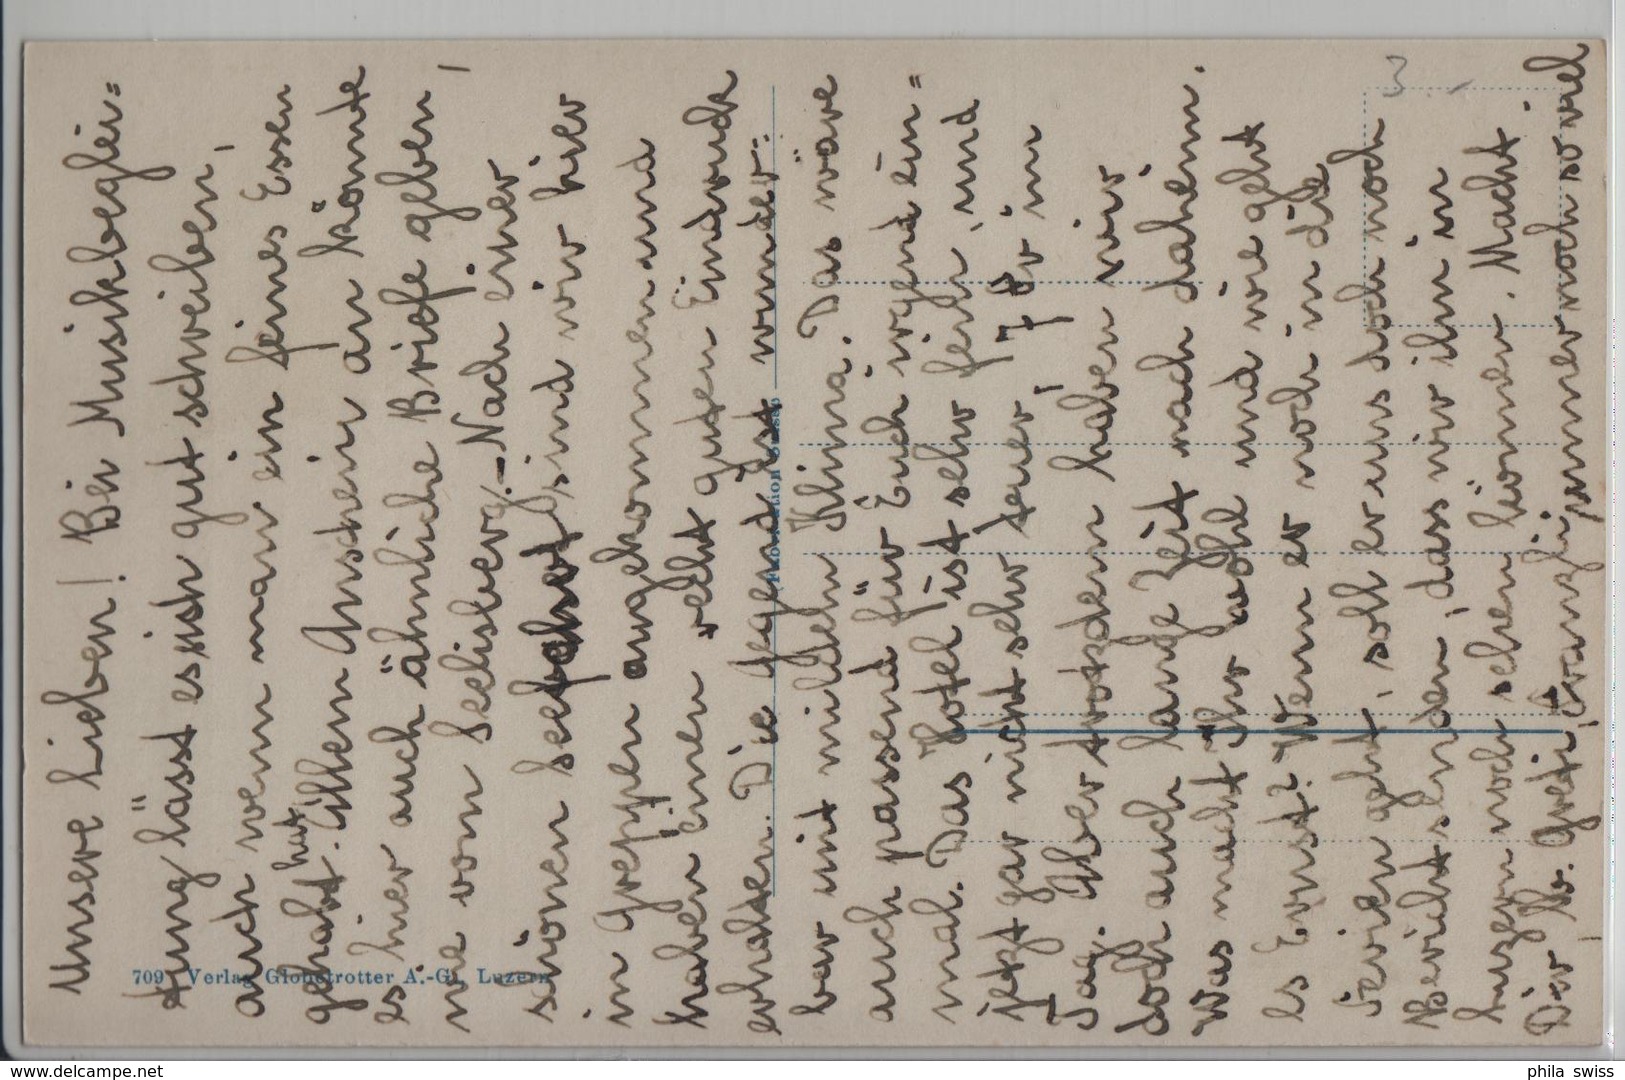 Unsere Lieben! Bei Musikbeglei=
tung lässt es sich gut schreiben,
auch wenn man ein feines Essen
gehabt hat. Allem Anschein an könnte
es hier auch ähnliche Briefe geben,
wie vom Seelisberg. – Nach einer
schönen Seefahrt sind wir hier
in Greppen angekommen und
haben einen recht guten Eindruck
erhalten. Die Gegend ist wunder=
bar mit mildem Klima. Das wäre
auch passend für Euch irgend ein=
mal. Das Hotel ist sehr fein, und
jetzt gar nicht sehr teuer, 7 Fr im
Tag. Aber trotzdem haben wir
doch auch lange Zeit nach daheim.
Was macht Ihr wohl und wie geht
es Ernst? Wenn er noch in die
Ferien geht, soll er uns doch noch
Bericht senden, dass wir ihn in
Luzern noch sehen können. Macht
Dir lb. Greti, Franzli immer noch so viel
709 Verlag Globetrotter A.-G., Luzern
3
phila swiss
www.delcampe.net